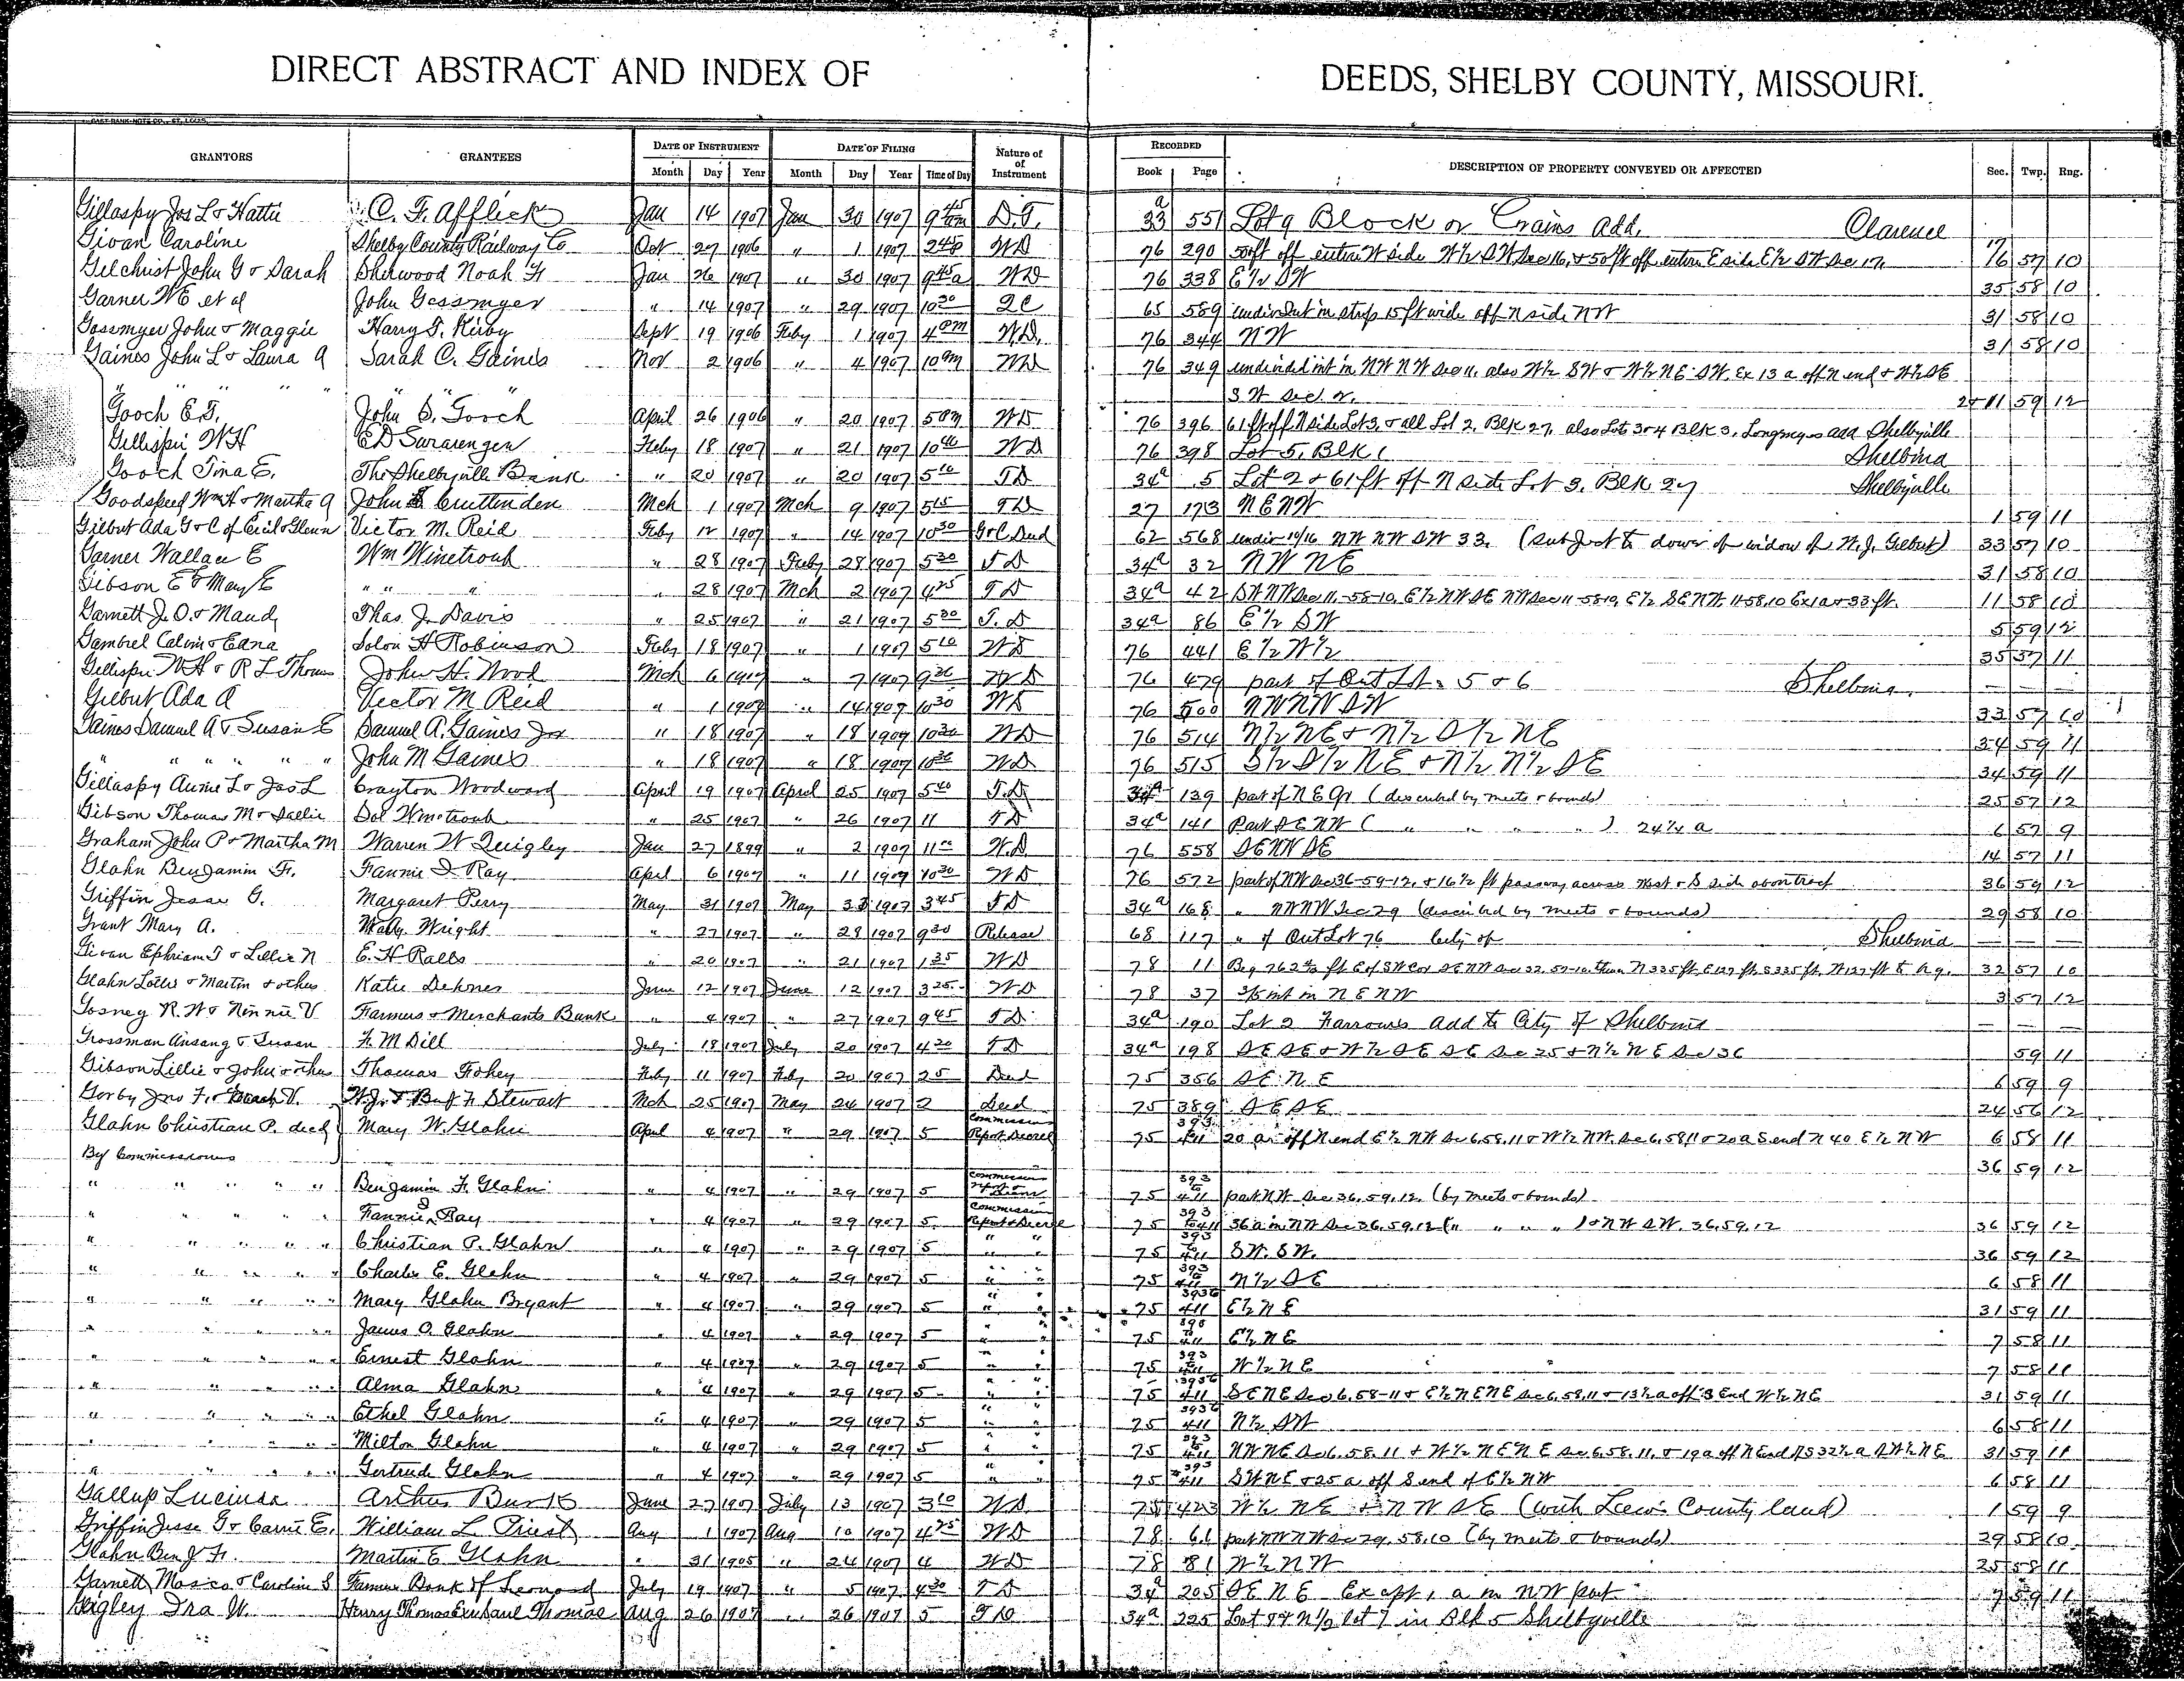 DIRECT ABSTRACT AND INDEX OF DEEDS, SHELBY COUNTY, MISSOURI.
GRANTORS GRANTEES DATE OF INSTRUMENT DATE OF FILING Nature of of Instrument RECORDED DESCRIPTION OF PROPERTY CONVEYED OR AFFECTED Sec. Twp. Rng.
Month Day Year Month Day Year Time of Day Book Page
Gillaspy Jos L & Hattie C. F. Afflick Jan 14 1907 Jan 30 1907 9 45 am D.T. 33 a 551 Lot 9 Block or Crains Add. Clarence
Givan Caroline Shelby County Railway Co Oct 27 1906 " 1 1907 2 45 p WD 76 290 50 ft off entire W side W½ SW Sec 16, & 50 ft off entire E side E½ SW Sec 17. 17 16 57 10
Gilchrist John G & Sarah Sherwood Noah F Jan 26 1907 " 30 1907 9 45 a WD 76 338 E½ SW 35 58 10
Garner WE et al John Gessmyer " 14 1907 " 29 1907 10 30 QC 65 589 undivid int in strip 15 ft wide off N side NW 31 58 10
Gossmyer John & Maggie Harry T. Kirby Sept 19 1906 Feby 1 1907 4 pm W.D. 76 344 NW 31 58 10
Gaines John L & Laura A Sarah C. Gaines Nov 2 1906 " 4 1907 10 am WD 76 349 undivided int in NW NW Sec 11, also W½ SW & W½ NE SW. Ex 13 a off N end & W½ SE
" " " " " " " SW Sec. 2. 2 & 11 59 12
Gooch E.T. John S. Gooch April 26 1906 " 20 1907 5 pm WD 76 396 61 ft off N side Lot 3, & all Lot 2, Blk 27, also Lot 3 & 4 Blk 3, Add Shelbyville
Gillispie WH ED Swearengen Feby 18 1907 " 21 1907 10 40 WD 76 398 Lot 5, Blk 1 Shelbina
Gooch Tina E. The Shelbyville Bank " 20 1907 " 20 1907 5 10 TD 34 a 5 Lot 2 & 61 ft off N side Lot 3, Blk 27 Shelbyville
Goodspeed Wm H & Martha A John Cruttenden Mch 1 1907 Mch 9 1907 5 15 TD 27 173 NENW 1 59 11
Gilbut Ada G & C of Cecil & Glenn Victor M. Reid Feby 12 1907 " 14 1907 10 30 G & C Deed 62 568 undiv 10/16 NW NW SW 33. (Subject to dower of widow of W. J. Gilbut) 33 57 10
Garner Wallace E Wm Winetroub " 28 1907 Feby 28 1907 5 30 TD 34 a 32 NW NE 31 58 10
Gibson E & Mary E " " " " 28 1907 Mch 2 1907 4 25 TD 34 a 42 SW NW Sec 11-58-10, E½ NW SE NW Sec 11-58-10, E½ SENW 11-58.10 Ex 1 a & 33 ft. 11 58 10
Garnett J. O. & Maud Thas. J. Davis " 25 1907 " 21 1907 5 30 T.D 34 a 86 E½ SW 5 59 12
Gambrel Calvin & Edna Solon H Robinson Feby 18 1907 " 1 1907 5 10 WD 76 441 E½ W½ 35 57 11
Gillispie WH & R L Thomas John H. Wood Mch 6 1907 " 7 1907 9 26 WD 76 479 part of Out Lots 5 & 6 Shelbina
Gilbut Ada A Victor M Reid " 1 1907 " 14 1907 10 30 WD 76 500 NWNWSW 33 57 10
Gaines Samuel A & Susan E Samuel A. Gaines Jr " 18 1907 " 18 1907 10 30 WD 76 514 N½ NE & N½ S½ NE 34 59 11
" " " " " John M Gaines " 18 1907 " 18 1907 10 30 WD 76 515 S½ S½ NE & N½ N½ SE 34 59 11
Gillaspy Annie L & Jos L Crayton Woodward April 19 1907 April 25 1907 5 40 T.D. 34 a 139 part of NE Qr (described by meets & bounds) 25 57 12
Gibson Thomas M & Sallie Sol Winetroub " 25 1907 " 26 1907 11 TD 34 a 141 Part SENW ( " " " ) 24¼ a 6 57 9
Graham John P & Martha M Warren W Quigley Jan 27 1899 " 2 1907 11 00 W.D. 76 558 SENWSE 14 57 11
Glahn Benjamin F. Fannie S. Ray April 6 1907 " 11 1907 10 30 WD 76 572 part of NW Sec 36-59-12, & 16½ ft passway across West & S side above tract 36 59 12
Griffin Jesse G. Margaret Perry May 31 1907 May 33 1907 3 45 TD 34 a 168 " NWNW Sec 29 (described by meets & bounds) 29 58 10
Grant Mary A. Wright " 27 1907 " 28 1907 9 30 Release 68 117 " of Out Lot 76 City of Shelbina
Givan Ephriam T & Lillie N E. H Ralls " 20 1907 " 21 1907 1 35 WD 78 11 Beg 762½ ft E of SW Cor SENW Sec 32, 57-10, then N 335 ft, E 127 ft, S 335 ft, W 127 ft to Beg. 32 57 10
Glahn Lottie & Martin & others Katie Dehner June 12 1907 June 12 1907 3 25 WD 78 37 int in NENW 3 57 12
Gosney R. W & Ninnie V Farmers & Merchants Bank " 4 1907 " 27 1907 9 45 TD 34 a 190 Lot 2 Farrows Add to City of Shelbina
Grossman Ansang & Susan F. M Dill July 18 1907 July 20 1907 4 20 TD 34 a 198 SESE & W½ SE SE Sec 25 & N½ NE Sec 36 59 11
Gibson Lillie & John & other Thomas Fohey Feby 11 1907 Feby 20 1907 25 Deed 75 356 SE NE 6 59 9
Gorby Jno F. & V. W.J. & Benj F. Stewart Mch 25 1907 May 24 1907 2 Deed 75 389 SESE 24 56 12
Glahn Christian P. decd Mary W. Glahn April 4 1907 " 29 1907 5 Commissioners Report Decree 75 393 411 20 a off N end E½ NW Sec 6.58.11 & W½ NW. Sec 6.58.11 & 20 a S end N 40 E½ NW 6 58 11
By Commissioners 36 59 12
" " " " Benjamin F. Glahn " 4 1907 " 29 1907 5 Commissioners report & Decree 75 393 to 411 part NW Sec 36.59.12. (by meets & bounds)
" " " " Fannie S Ray " 4 1907 " 29 1907 5 Commission Report & Decree 75 393 to 411 36 a in NW Sec 36.59.12 (" " " ) & NW SW. 36.59.12 36 59 12
" " " " Christian P. Glahn " 4 1907 " 29 1907 5 " " 75 393 to 411 SW. SW. 36 59 12
" " " " Charles E. Glahn " 4 1907 " 29 1907 5 " " 75 393 to 411 N½ SE 6 58 11
" " " " Mary Glahn Bryant " 4 1907 " 29 1907 5 " " 75 393 to 411 E½ NE 31 59 11
" " " " James O. Glahn " 4 1907 " 29 1907 5 " " 75 393 to 411 E½ NE 7 58 11
" " " " Ernest Glahn " 4 1907 " 29 1907 5 " " 75 393 to 411 W½ NE 7 58 11
" " " " Alma Glahn " 4 1907 " 29 1907 5 " " 75 393 to 411 SENE Sec 6.58-11 & E½ NENE Sec 6.58.11 & 13½ a off S End W½ NE 31 59 11
" " " " Ethel Glahn " 4 1907 " 29 1907 5 " " 75 393 to 411 N½ SW 6 58 11
" " " " Milton Glahn " 4 1907 " 29 1907 5 " " 75 393 to 411 NWNE Sec 6.58.11 & W½ NENE Sec 6.58.11, & 19 a off N End S 32½ a W½ NE 31 59 11
" " " " Gertrude Glahn " 4 1907 " 29 1907 5 " " 75 393 to 411 SWNE & 25 a off S end of E½ NW 6 58 11
Gallup Lucinda Arthur Bunk June 27 1907 July 13 1907 3 10 WD 75 423 W½ NE & NWSE (with Lewis County land) 1 59 9
Griffin Jesse G & Carrie E. William L Priest Aug 1 1907 Aug 10 1907 4 25 WD 78 61 part NWNW Sec 29, 58.10 (by meets & bounds) 29 58 10
Glahn Benj F. Martin E Glahn " 31 1905 " 24 1907 4 WD 78 81 W½ NW 25 58 11
Garnett Mosco & Caroline S Farmers Bank of Leonard July 19 1907 " 5 1907 4 30 TD 34 a 205 SENE Except 1 a in NW part 7 59 11
Geigley Ira W. Henry Thomas Exr Saul Thomas Aug 26 1907 " 26 1907 5 TD 34 a 225 Lot 8 & N½ lot 7 in Blk 5 Shelbyville